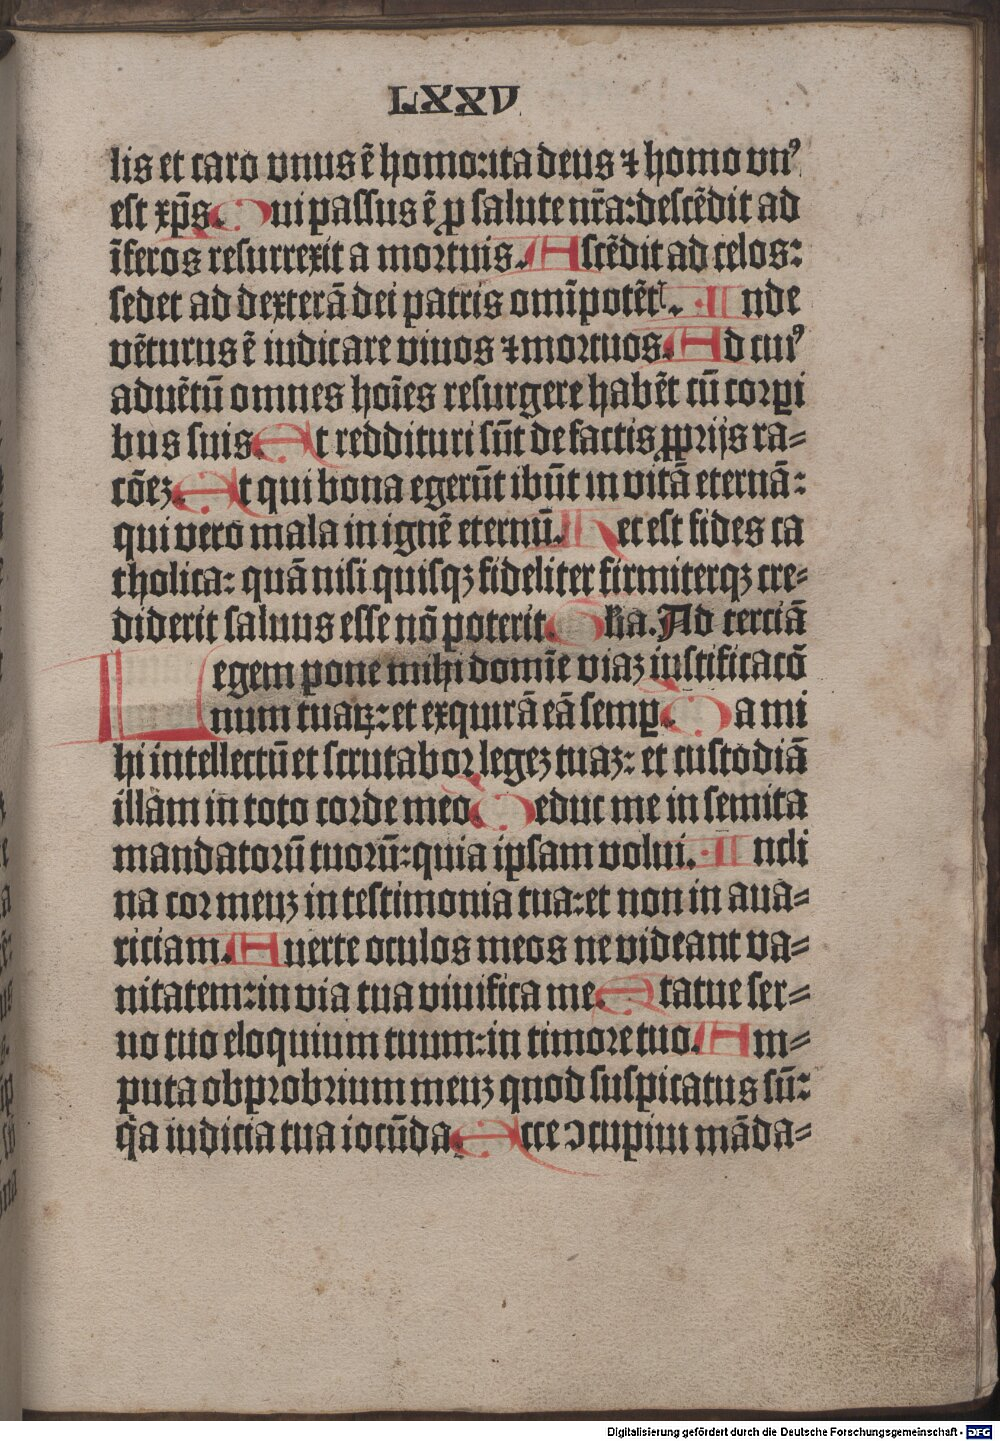 LXXV
lis et caro vnus ē homo: ita deus ⁊ homo vnꝰ
est xp̄s. Qui passus ē ꝓ salute nr̄a: descēdit ad
īferos resurrexit a mortuis. Ascēdit ad celos:
sedet ad dexterā dei patris omīpotētꝭ. Inde
vēturus ē iudicare viuos ⁊ mortuos. Ad cuiꝰ
aduētū omnes hoīes resurgere habēt cū corꝑi
bus suis. Et reddituri sūt de factis ꝓprijs ra⸗
cōeꝫ. Et qui bona egerūt ibūt in vitā eternā:
qui vero mala in ignē eternū. Hec est fides ca
tholica: quā nisi quisqꝫ fideliter firmiterqꝫ cre⸗
diderit saluus esse nō poterit. Glīa. Ad terciā
Legem pone mihi domīe viaꝫ iustificacō
num tuaꝝ: et exquirā eā semꝑ. Da mi
hi intellectū et scrutabor legeꝫ tuaꝫ: et custodiā
illam in toto corde meo. Deduc me in semita
mandatorū tuorū: quia ipsam volui. Incli
na cor meuꝫ in testimonia tua: et non in aua⸗
riciam. Auerte oculos meos ne videant va⸗
nitatem: in via tua viuifica me. Statue ser⸗
uo tuo eloquium tuum: in timore tuo. Am⸗
puta obprobrium meuꝫ quod suspicatus sū:
q̄a iudicia tua iocūda. Ecce ↄcupiui māda⸗
Digitalisierung gefördert durch die Deutsche Forschungsgemeinschaft - DFG